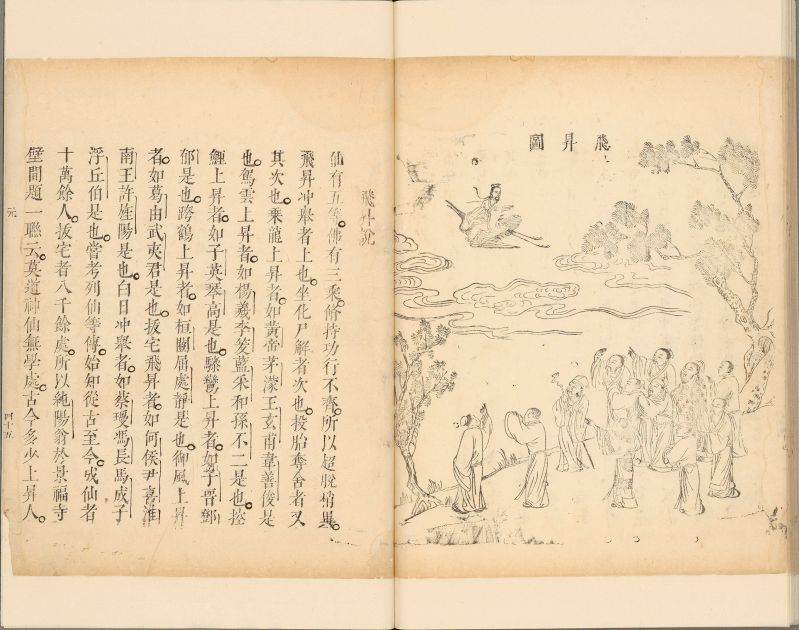 飛昇圖
飛昇說
仙有五等。佛有三乘。修持功行不齊。所以超脫稍異。
飛昇冲舉者上也。坐化尸解者次也。投胎奪舍者又
其次也。乘龍上昇者。如黃帝茅濛王玄甫韋善俊是
也。駕雲上昇者。如楊羲李筌藍采和孫不二是也。控
鯉上昇者。如子英琴高是也。驂鸞上昇者。如子晉鄧
郁是也。跨鶴上昇者。如桓闓屈處靜是也。御風上昇
者。如葛由武夷君是也。拔宅飛昇者。如何侯尹喜淮
南王許旌陽是也。白日冲舉者。如蔡瓊馮長馬成子
浮丘伯是也。嘗考列仙等傳。始知從古至今。成仙者
十萬餘人。拔宅者八千餘處。所以純陽翁於景福寺
壁間題一聯云。莫道神仙無學處。古今多少上昇人。
元
四十五